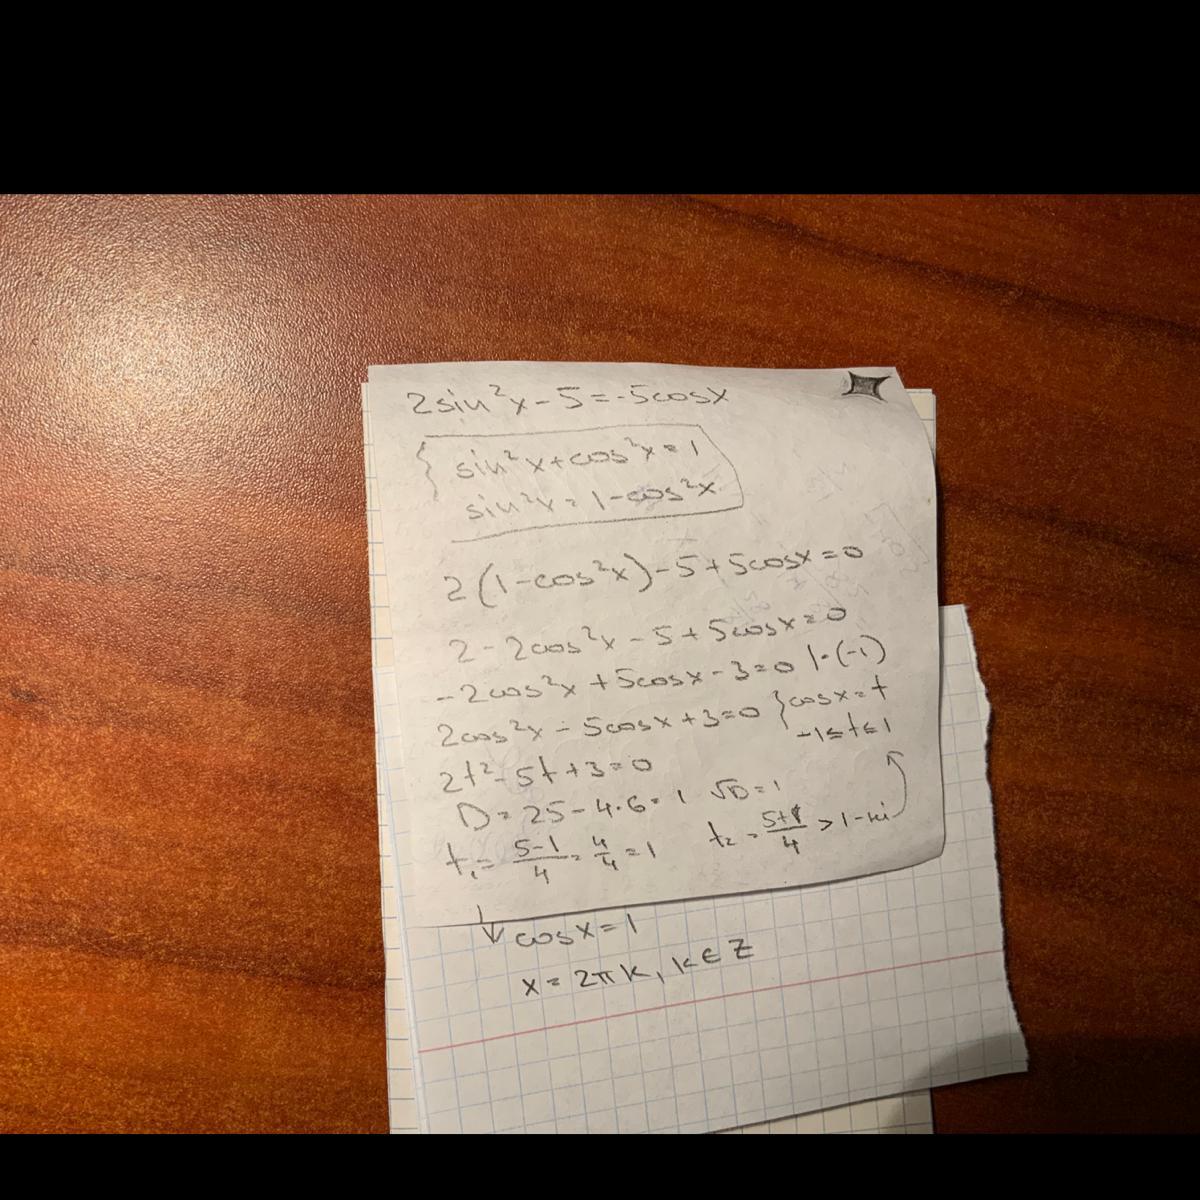 2sin²x-5=-5cosx
{ sin²x+cos²x=1
sin²x=1-cos²x
2(1-cos²x)-5+5cosx=0
2-2cos²x-5+5cosx=0
-2cos²x+5cosx-3=0 |·(-1)
2cos²x-5cosx+3=0 { cosx=t
-1≤t≤1
2t²-5t+3=0
D=25-4·6=1 √D=1
t₁=(5-1)/4=4/4=1 t₂=(5+1)/4>1-ні
↓ cosx=1
x=2πk, k∈Z